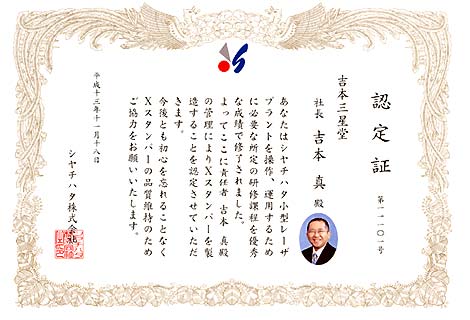 認定証
第一一〇一号
吉本三星堂
社長 吉本 真 殿
あなたはシヤチハタ小型レーザ
プラントを操作、運用するため
に必要な所定の研修課程を優秀
な成績で修了されました。
よってここに責任者 吉本 真 殿
の管理によりXスタンパーを製
造することを認定させていただ
きます。
今後とも初心を忘れることなく
Xスタンパーの品質維持のため
ご協力をお願いいたします。
平成十三年十一月十八日
シヤチハタ株式会社